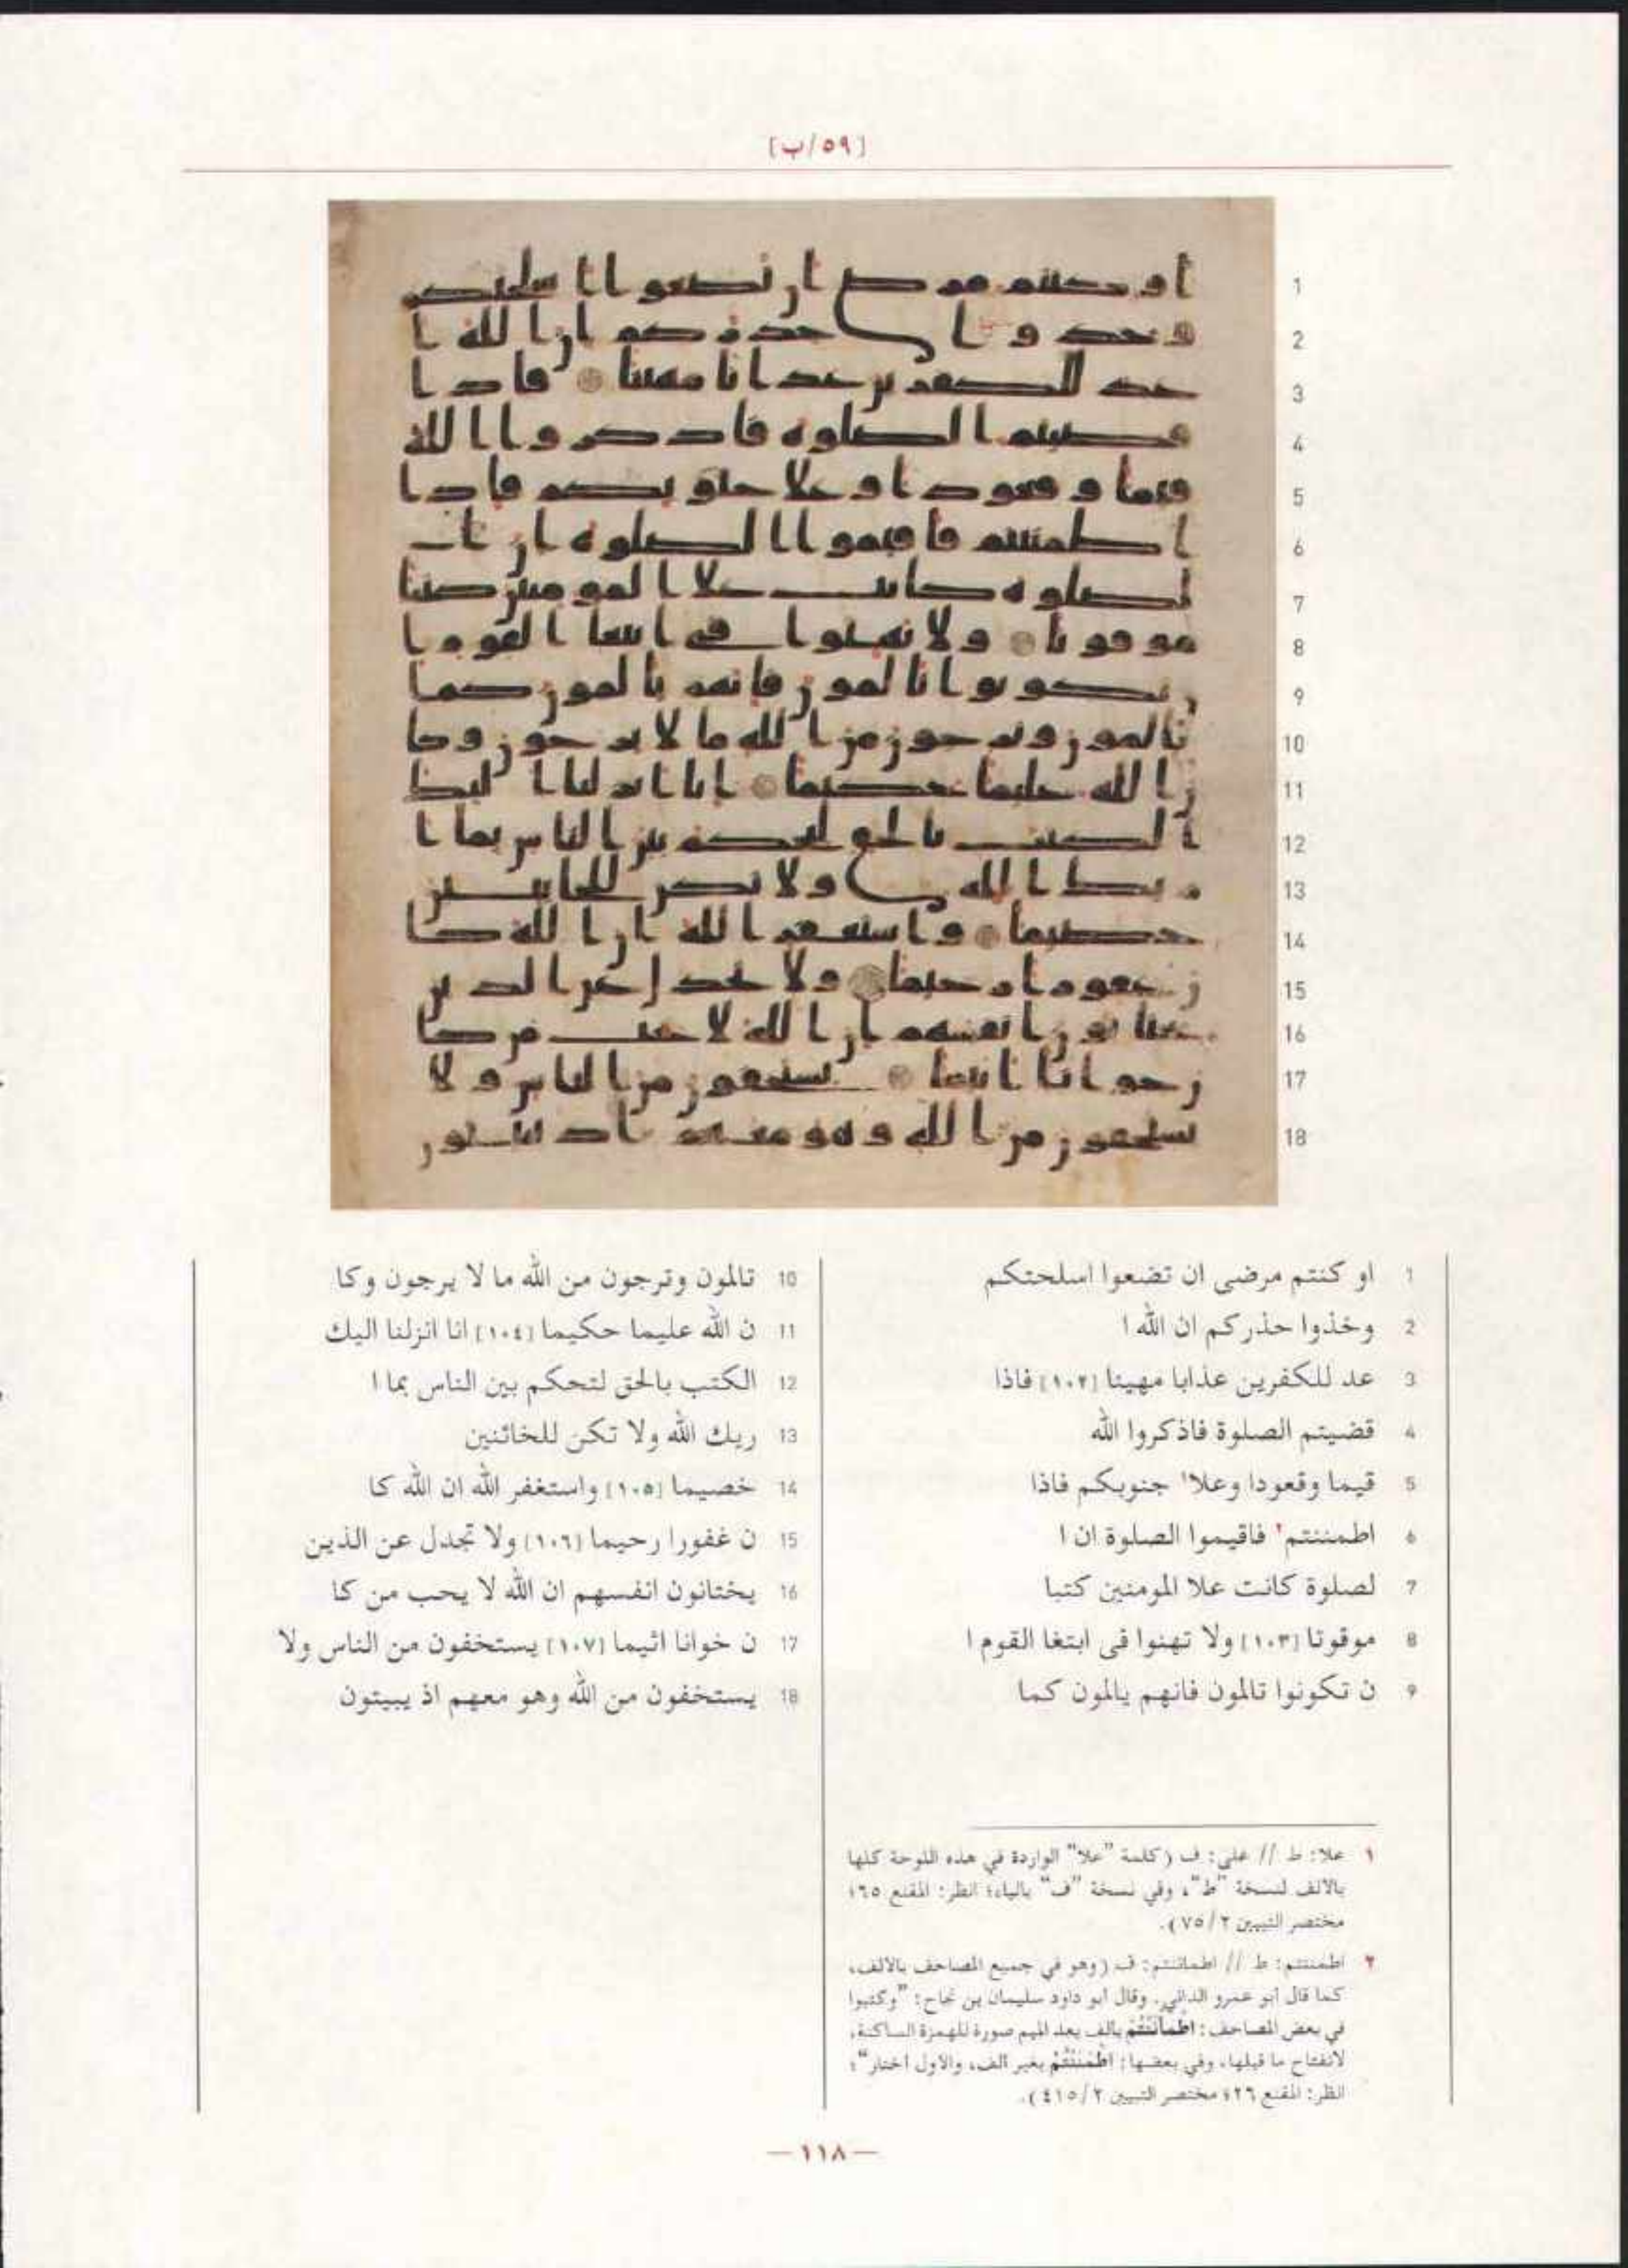 [٥٩/ب]
1 او كنتم مرضى ان تضعوا اسلحتكم
2 وخذوا حذركم ان الله ا
3 عد للكفرين عذابا مهينا [١٠٢] فاذا
4 قضيتم الصلوة فاذكروا الله
5 قيما وقعودا وعلا١ جنوبكم فاذا
6 اطمننتم٢ فاقيموا الصلوة ان ا
7 لصلوة كانت علا المومنين كتبا
8 موقوتا [١٠٣] ولا تهنوا فى ابتغا القوم ا
9 ن تكونوا تالمون فانهم يالمون كما
10 تالمون وترجون من الله ما لا يرجون وكا
11 ن الله عليما حكيما [١٠٤] انا انزلنا اليك
12 الكتب بالحق لتحكم بين الناس بما ا
13 ريك الله ولا تكن للخائنين
14 خصيما [١٠٥] واستغفر الله ان الله كا
15 ن غفورا رحيما [١٠٦] ولا تجدل عن الذين
16 يختانون انفسهم ان الله لا يحب من كا
17 ن خوانا اثيما [١٠٧] يستخفون من الناس ولا
18 يستخفون من الله وهو معهم اذ يبيتون
١ علا: ط // على: ف (كلمة "علا" الواردة في هذه اللوحة كلها
بالالف لنسخة "ط"، وفي نسخة "ف" بالياء؛ انظر: المقنع ٦٥؛
مختصر التبيين ٧٥/٢).
٢ اطمننتم: ط // اطماننتم: ف (وهو في جميع المصاحف بالالف،
كما قال ابو عمرو الداني. وقال ابو داود سليمان بن نجاح: "وكتبوا
في بعض المصاحف: اطْمَأْنَنْتُمْ بالف بعد الميم صورة للهمزة الساكنة،
لانفتاح ما قبلها، وفي بعضها: اطْمَنْنْتُمْ بغير الف، والاول اختار"؛
انظر: المقنع ٢٦؛ مختصر التبيين ٤١٥/٢).
— ١١٨ —